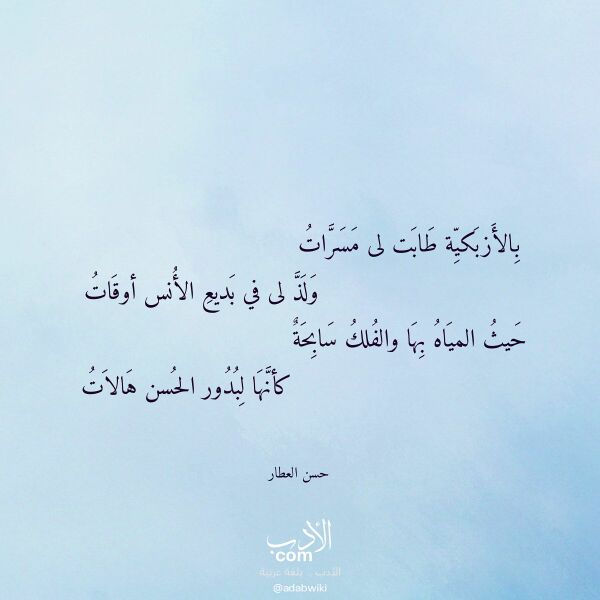 بِالأَزبَكيِّة طَابَت لى مَسَرَّاتُ
وَلَذَّ لى في بَديعِ الأُنس أوقَاتُ
حَيثُ المِيَاهُ بِهَا والفُلكُ سَابِحَةٌ
كأنَّهَا لِبُدُور الحُسن هَالاَتُ
حسن العطار
الأدب
com
الأدب .. بلغة عربية
@adabwiki